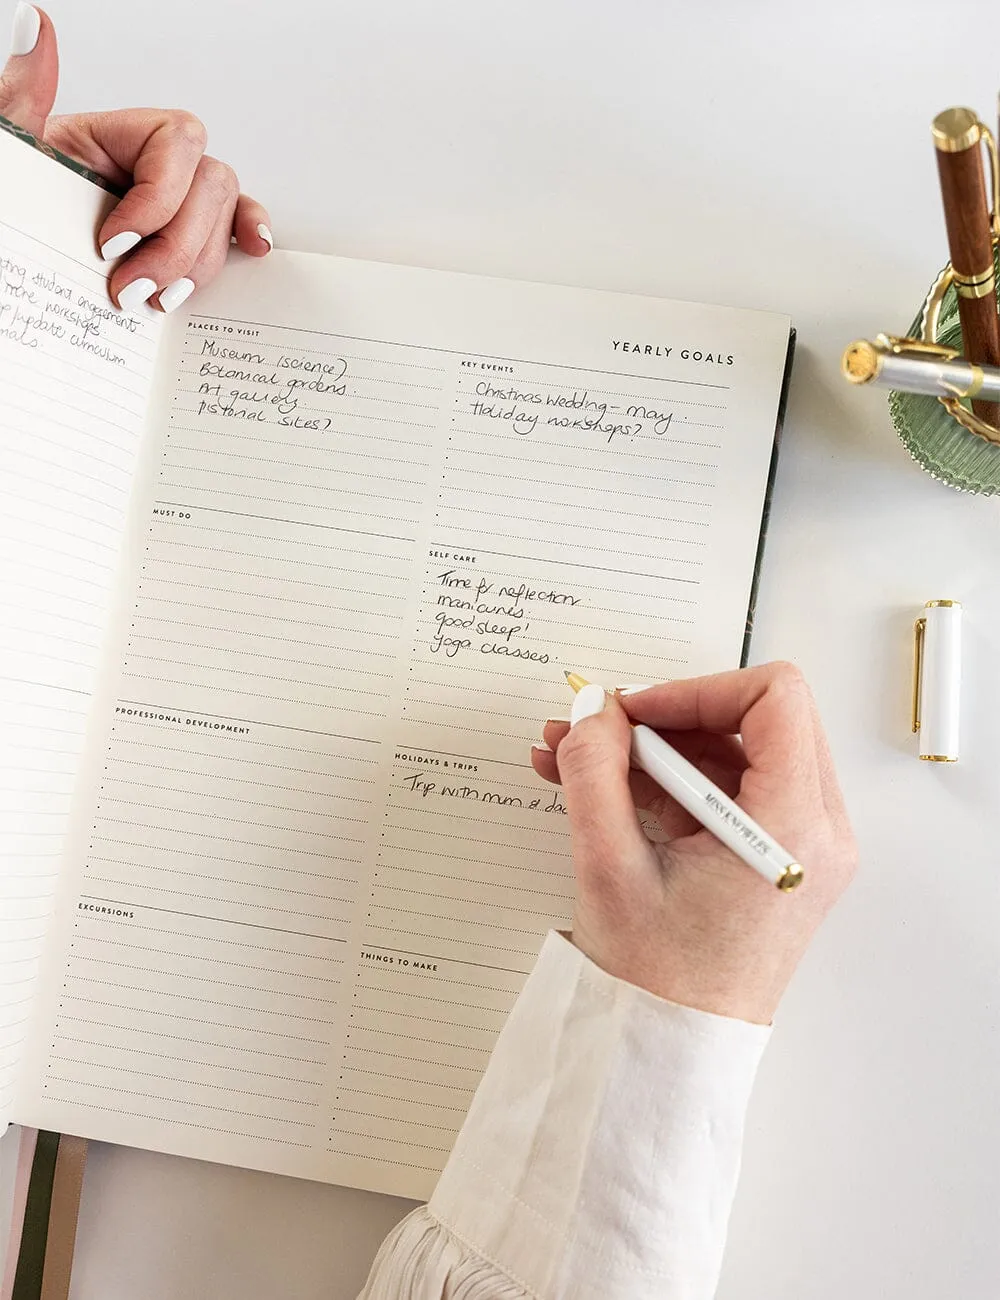 ting student engagement
more workshops.
p/update curriculum
YEARLY GOALS
PLACES TO VISIT
Museum (science)
Botanical gardens.
Art gallery
Historial sites?
KEY EVENTS
Christinas Wedding - may.
Holiday workshops?
MUST DO
SELF CARE
Time for reflection
manicures.
good sleep!
yoga classes.
PROFESSIONAL DEVELOPMENT
HOLIDAYS & TRIPS
Trip with mum & dad
EXCURSIONS
THINGS TO MAKE
MISS KNOWLES